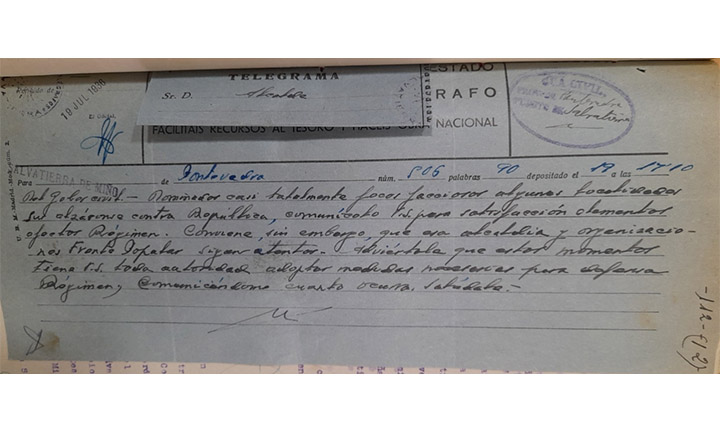 TELEGRAMA
Sr. D. Alcalde
ESTADO
GRAFO
FACILITAIS RECURSOS AL TESORO Y HACEIS OBRA NACIONAL
19 JUL 1936
SALVATIERRA DE MIÑO
Para de Pontevedra núm. 506 palabras 90 depositado el 19 a las 17'10
Del Gobor civil.- Dominados casi totalmente focos facciosos algunas localidades
su alzarse contra República, comunícolo V.S. para satisfacción elementos
afectos Régimen. Conviene, sin embargo, que esa alcaldía y organizacio-
nes Frente Popular sigan atentos. Adviértola que estos momentos
tiene V.S. toda autoridad adoptar medidas necesarias para defensa
Régimen, comunicándome cuanto ocurra. Salúdale.-